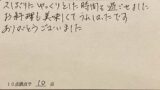 久しぶりにゆっくりとした時間を過ごせました
お料理も美味しくてうれしかったです
ありがとうございました
10点満点中 10 点